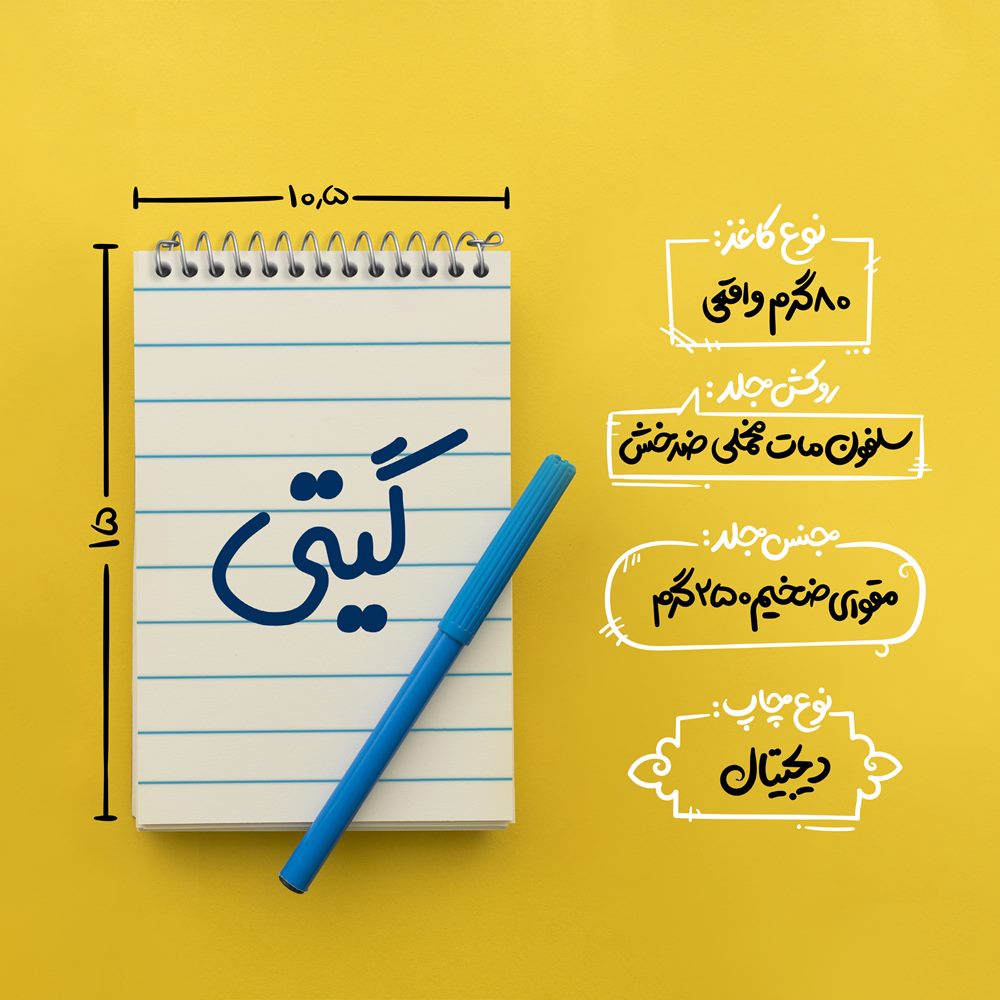 ۱۰٫۵
۱۵
گیتی
نوع کاغذ:
۸۰ گرم واقعی
روکش جلد:
سلفون مات مخملی ضدخش
جنس جلد:
مقوای ضخیم ۲۵۰ گرم
نوع چاپ:
دیجیتال